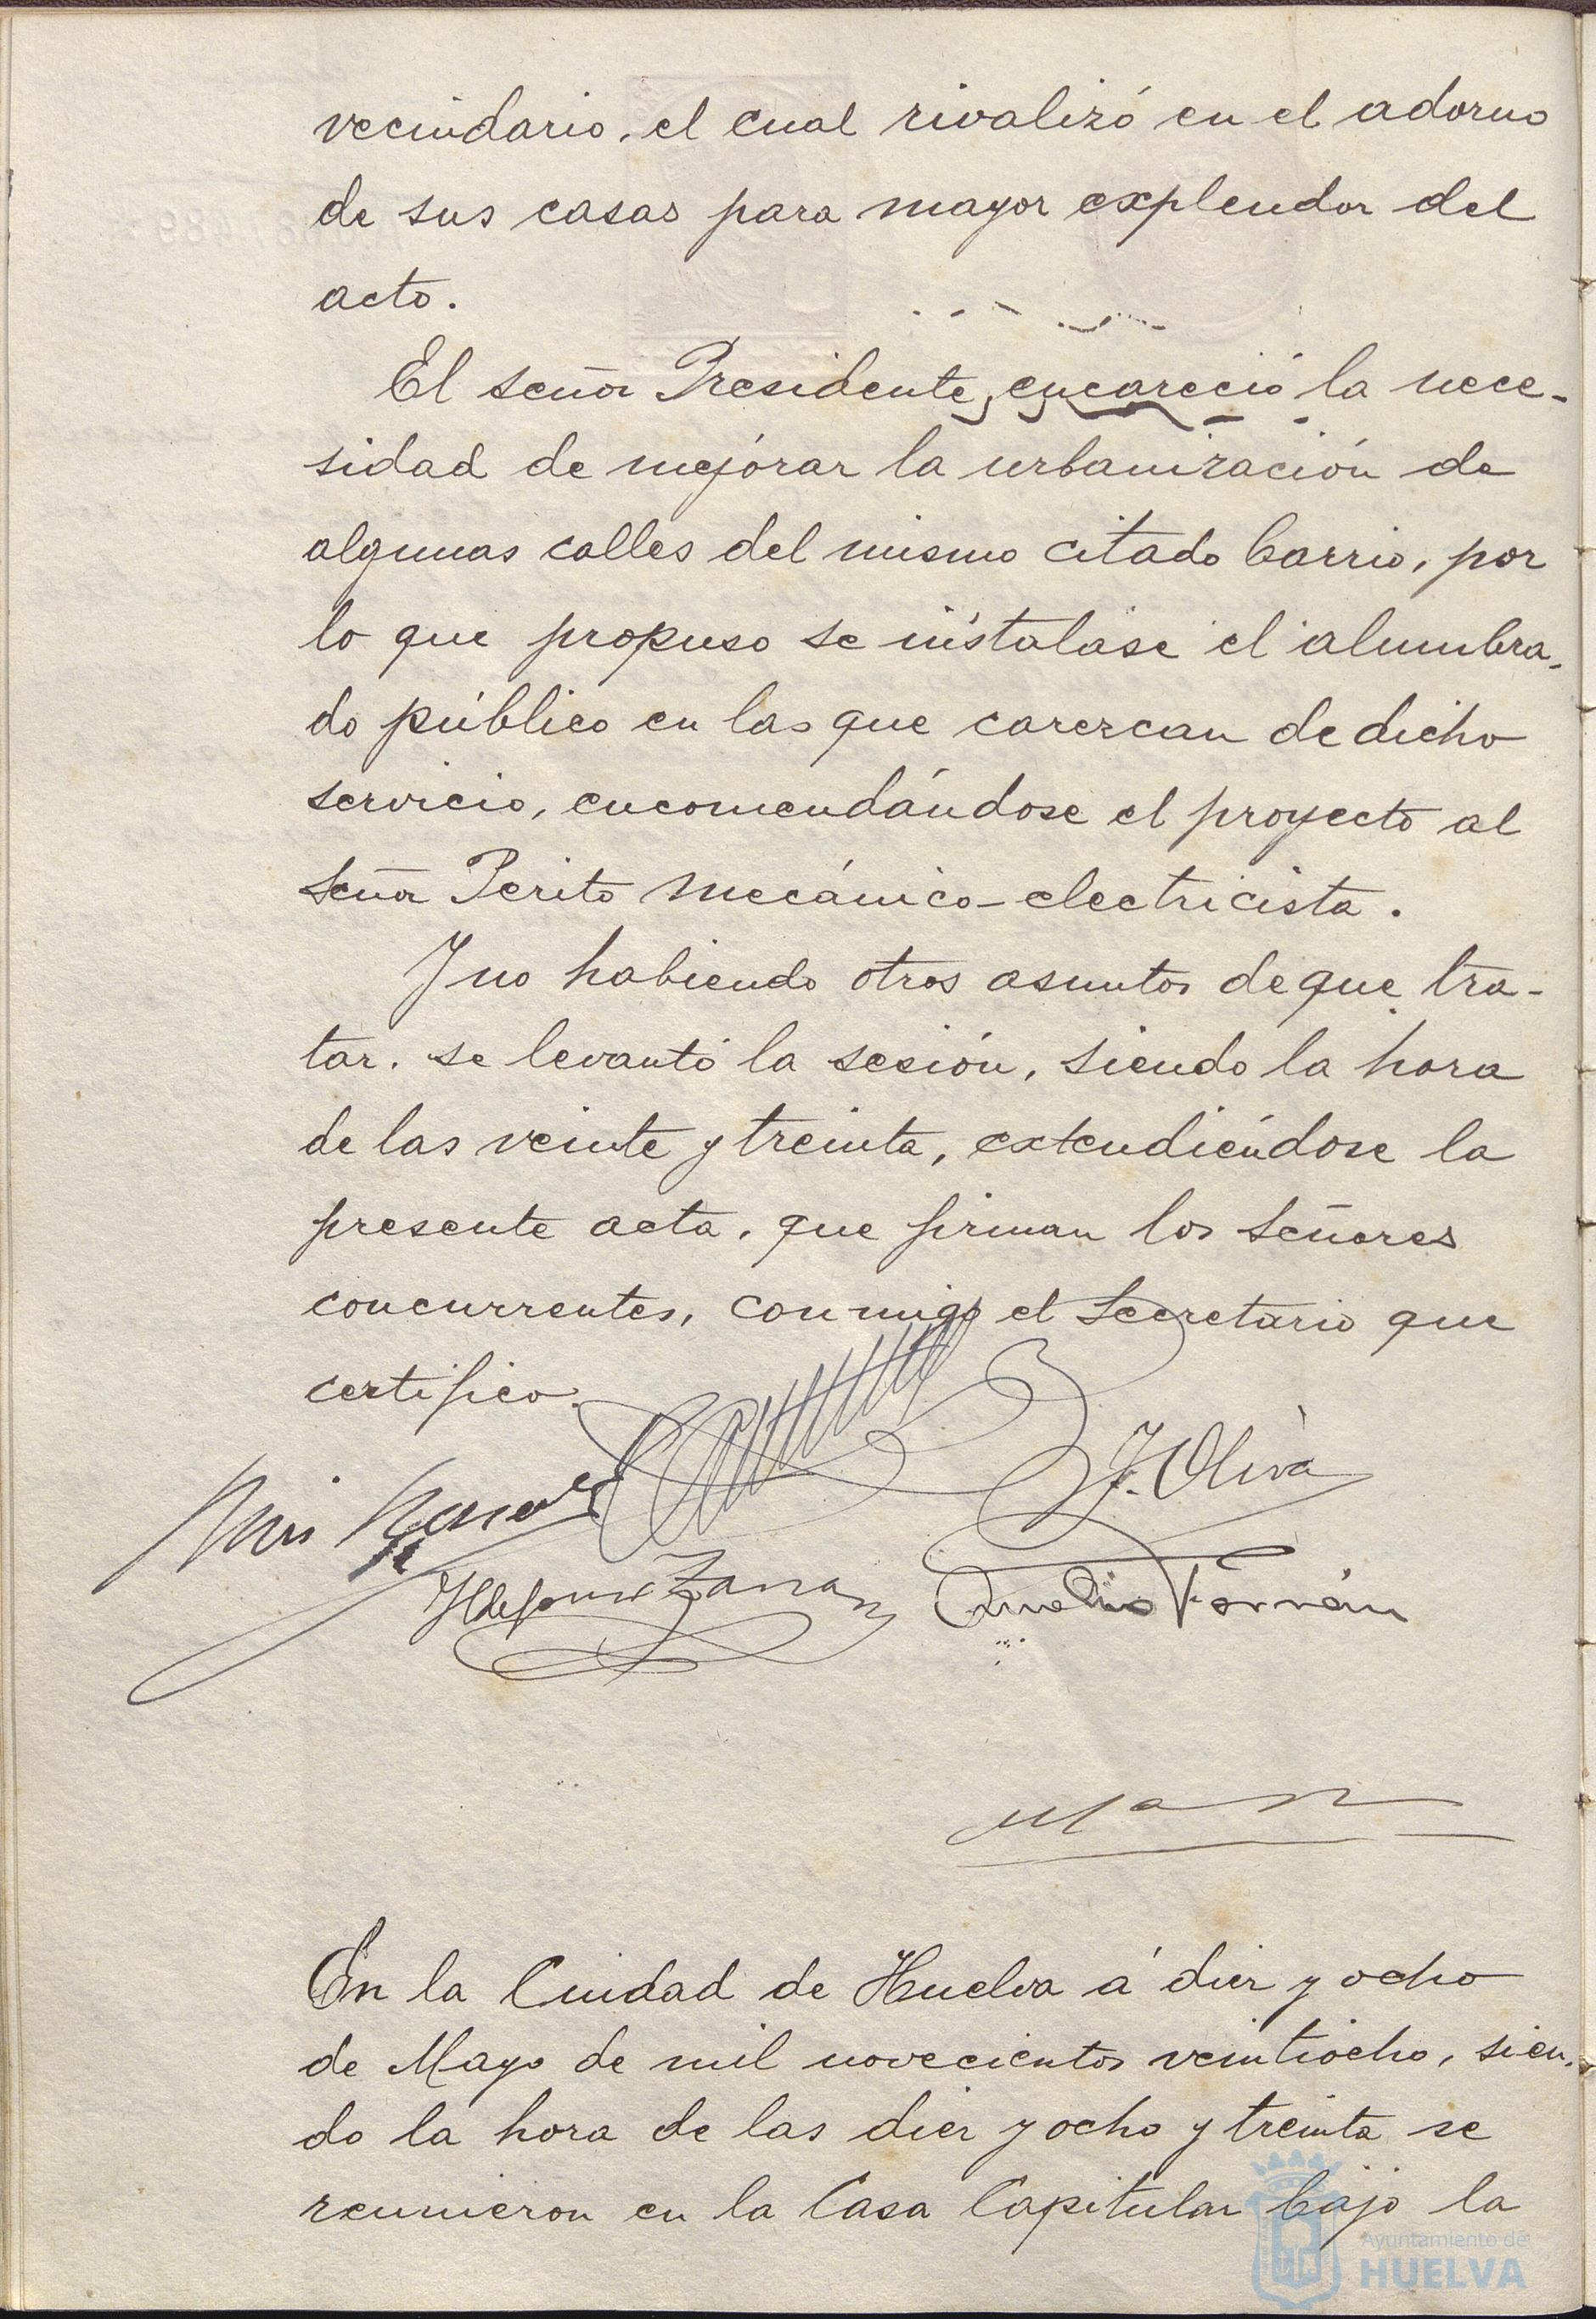 vecindario, el cual rivalizó en el adorno
de sus casas para mayor explendor del
acto.
El señor Presidente, encareció la nece-
sidad de mejorar la urbanización de
algunas calles del mismo citado barrio, por
lo que propuso se instalase el alumbra-
do público en las que carezcan de dicho
servicio, encomendándose el proyecto al
señor Perito mecánico-electricista.
Y no habiendo otros asuntos de que tra-
tar, se levantó la sesión, siendo la hora
de las veinte y treinta, extendiéndose la
presente acta, que firman los señores
concurrentes, conmigo el Secretario que
certifico.
J. Oliva
En la Ciudad de Huelva á diez y ocho
de Mayo de mil novecientos veintiocho, sien-
do la hora de las diez y ocho y treinta se
reunieron en la Casa Capitular bajo la
Ayuntamiento de
HUELVA